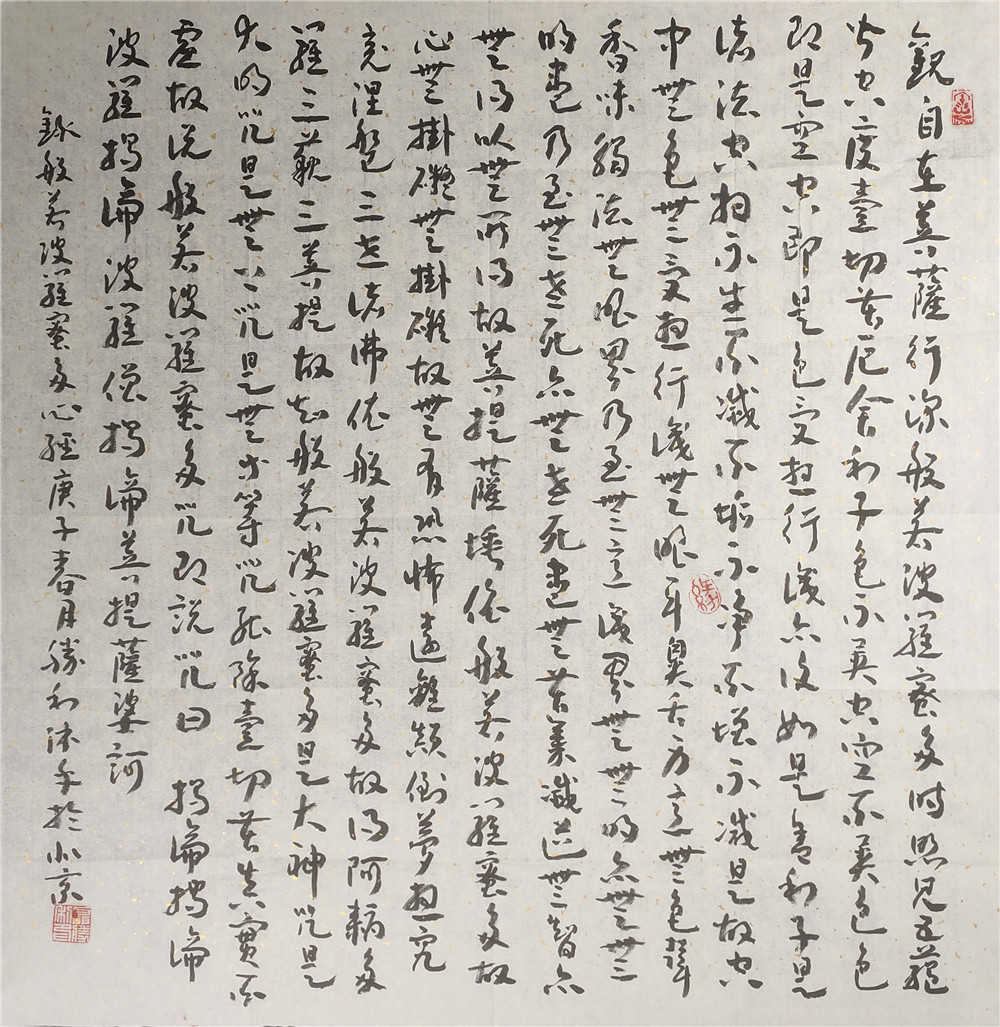 觀自在菩薩行深般若波羅蜜多時照見五蘊
皆空度壹切苦厄舍利子色不異空空不異色色
即是空空即是色受想行識亦復如是舍利子是
諸法空相不生不滅不垢不净不增不減是故空
中無色無受想行識無眼耳鼻舌身意無色聲
香味觸法無眼界乃至無意識界無無明亦無無
明盡乃至無老死亦無老死盡無苦集滅道無智亦
無得以無所得故菩提薩埵依般若波羅蜜多故
心無掛礙無掛礙故無有恐怖遠離顛倒夢想究
竟涅槃三世諸佛依般若波羅蜜多故得阿耨多
羅三藐三菩提故知般若波羅蜜多是大神咒是
大明咒是無上咒是無等等咒能除壹切苦真實不
虛故說般若波羅蜜多咒即說咒曰 揭諦揭諦
波羅揭諦波羅僧揭諦菩提薩婆訶
錄般若波羅蜜多心經庚子春月勝利沐手於北京